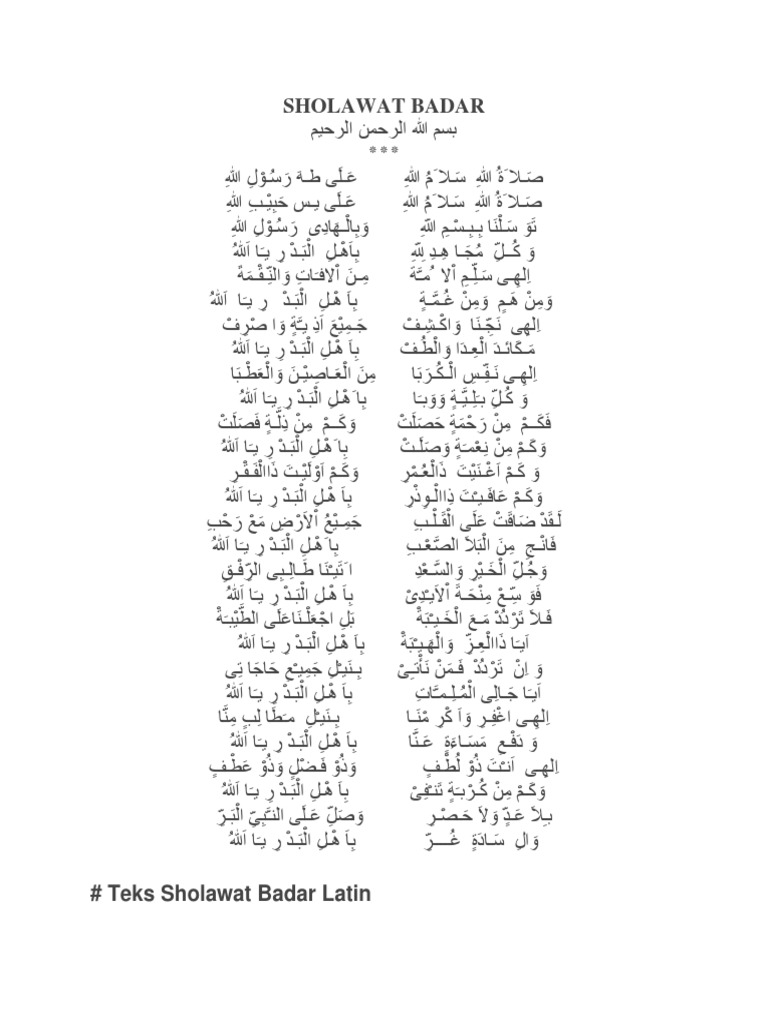 SHOLAWAT BADAR
بسم الله الرحمن الرحيم
***
صَلاَةُ اللهِ سَلاَمُ اللهِ عَلَى طهَ رَسُوْلِ اللهِ
صَلاَةُ اللهِ سَلاَمُ اللهِ عَلَى يس حَبِيْبِ اللهِ
تَوَ سَلْنَا بِبِسْمِ اللهِ وَبِالْهَادِى رَسُوْلِ اللهِ
وَ كُلِّ مُجَا هِدِ لِلّهِ بِاَهْلِ الْبَدْ رِ يَا اَللهُ
اِلهِى سَلِّمِ اْلا ُمَّة مِنَ اْلافَاتِ وَالنِّقْمَةْ
وَمِنْ هَمٍ وَمِنْ غُمَّةٍ بِاَ هْلِ الْبَدْ رِ يَا اَللهُ
اِلهِى نَجِّنَا وَاكْشِفْ جَمِيْعَ اَذِ يَّةٍ وَا صْرِفْ
مَكَائِدَ الْعِدَا وَالْطُفْ بِاَ هْلِ الْبَدْ رِ يَا اَللهُ
اِلهِى نَفِّسِ الْكُرَبَا مِنَ الْعَاصِيْنَ وَالْعَطْبَا
وَ كُلِّ بَلِيَّةٍ وَوَبَا بِاَ هْلِ الْبَدْ رِ يَا اَللهُ
فَكَمْ مِنْ رَحْمَةٍ حَصَلَتْ وَكَمْ مِنْ ذِلَّةٍ فَصَلَتْ
وَكَمْ مِنْ نِعْمَةٍ وَصَلَتْ بِاَ هْلِ الْبَدْ رِ يَا اَللهُ
وَ كَمْ اَغْنَيْتَ ذَالْعُمْرِ وَكَمْ اَوْلَيْتَ ذَاالْفَقْرِ
وَكَمْ عَافَيْتَ ذِاالْوِذْرِ بِاَ هْلِ الْبَدْ رِ يَا اَللهُ
لَقَدْ ضَاقَتْ عَلَى الْقَلْبِ جَمِيْعُ اْلاَرْضِ مَعْ رَحْبِ
فَانْجِ مِنَ الْبَلاَ الصَّعْبِ بِاَ هْلِ الْبَدْ رِ يَا اَللهُ
وَجُلِّ الْخَيْرِ وَالسَّعْدِ اَتَيْنَا طَالِبِى الرِّفْقِ
فَوَ سِّعْ مِنْحَةَ اْلاَيْدِىْ بِاَ هْلِ الْبَدْ رِ يَا اَللهُ
فَلاَ تَرْدُدْ مَعَ الْخَيْبَةْ بَلِ اجْعَلْنَاعَلَى الطَّيْبَةْ
اَيَا ذَاالْعِزِّ وَالْهَيْبَةْ بِاَ هْلِ الْبَدْ رِ يَا اَللهُ
وَ اِنْ تَرْدُدْ فَمَنْ نَأْتِىْ بِنَيْلِ جَمِيْعِ حَاجَا تِى
اَيَا جَالِى الْمُلِمَّاتِ بِاَ هْلِ الْبَدْ رِ يَا اَللهُ
اِلهِى اغْفِرِ وَاَ كْرِ مْنَا بِنَيْلِ مَطَالِبٍ مِنَّا
وَ دَفْعِ مَسَاءَةٍ عَنَّا بِاَ هْلِ الْبَدْ رِ يَا اَللهُ
اِلهِى اَنْتَ ذُوْ لُطْفٍ وَذُوْ فَضْلٍ وَذُوْ عَطْفٍ
وَكَمْ مِنْ كُرْبَةٍ تَنْفِىْ بِاَ هْلِ الْبَدْ رِ يَا اَللهُ
بِلاَ عَدٍّ وَلاَ حَصْرِ وَصَلِّ عَلَى النَّبِىِّ الْبَرِّ
وَالِ سَادَةٍ غُرِّ بِاَ هْلِ الْبَدْ رِ يَا اَللهُ
# Teks Sholawat Badar Latin